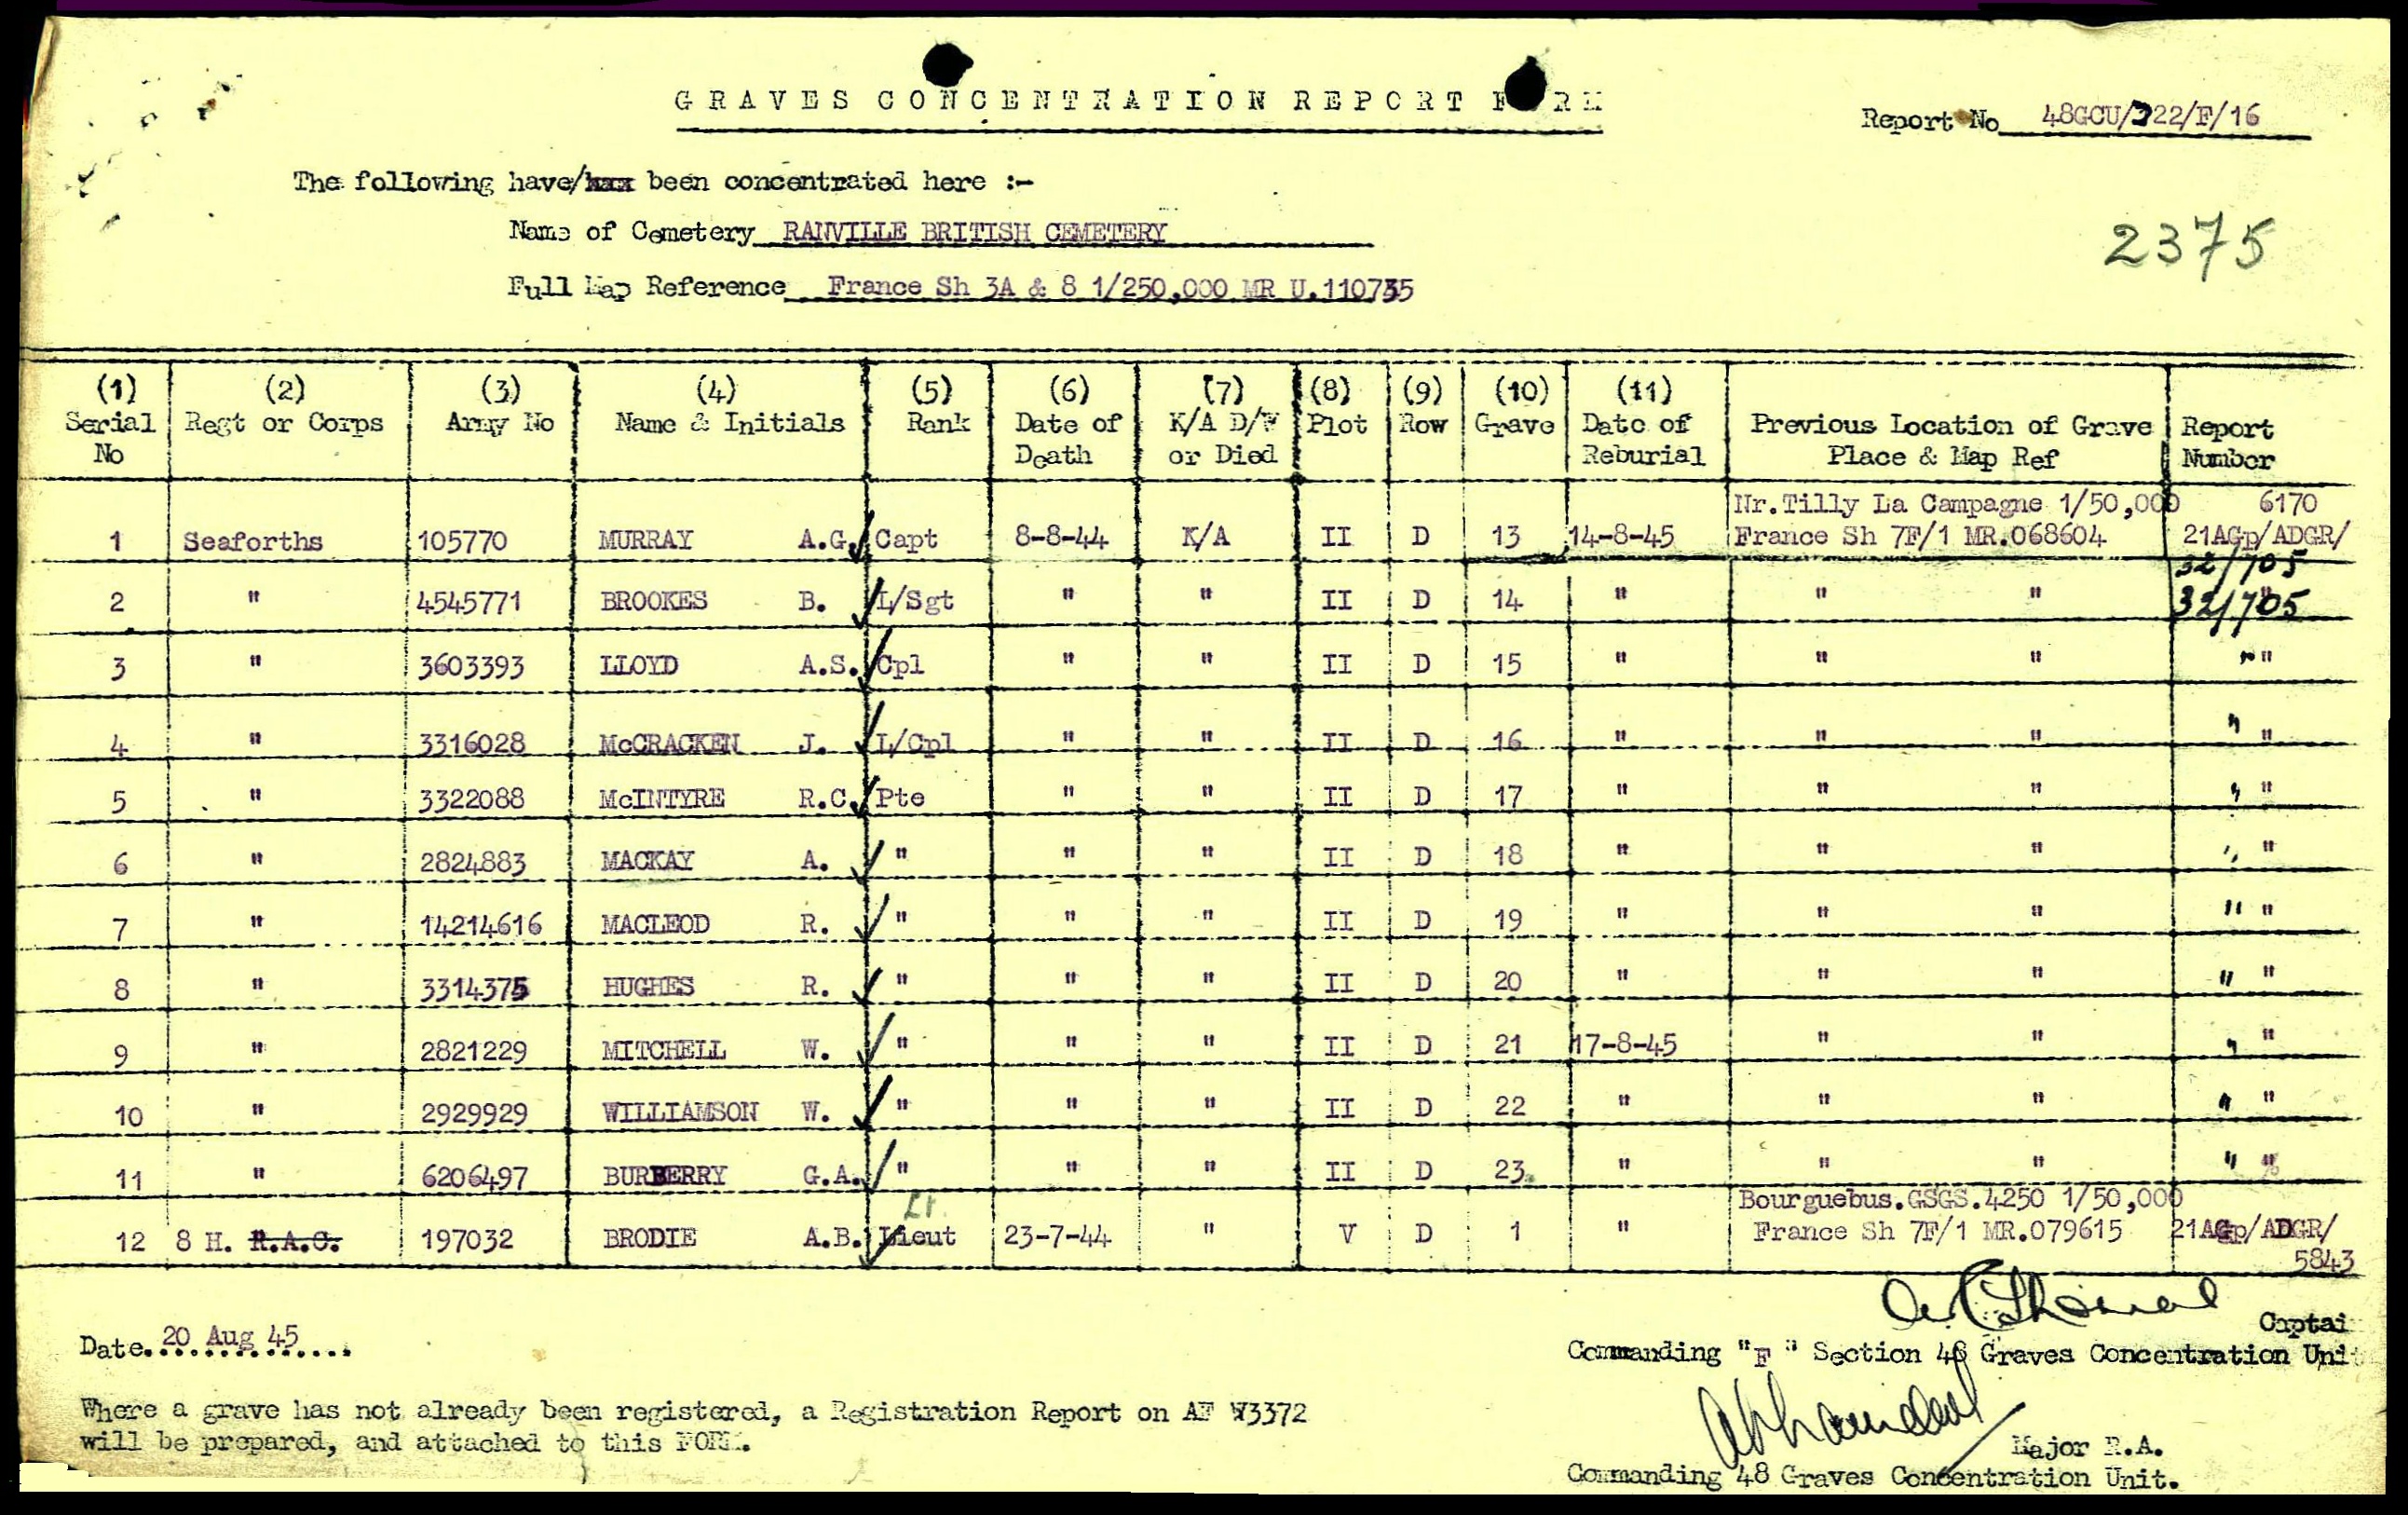 GRAVES CONCENTRATION REPORT FORM
Report No 48GCU/322/F/16
The following have/xxx been concentrated here :-
Name of Cemetery RANVILLE BRITISH CEMETERY
2375
Full Map Reference France Sh 3A & 8 1/250,000 MR U.110735
(1) (2) (3) (4) (5) (6) (7) (8) (9) (10) (11)
Serial Regt or Corps Army No Name & Initials Rank Date of K/A D/W Plot Row Grave Date of Previous Location of Grave Report
No Death or Died Reburial Place & Map Ref Number
Nr.Tilly La Campagne 1/50,000 6170
1 Seaforths 105770 MURRAY A.G. Capt 8-8-44 K/A II D 13 14-8-45 France Sh 7F/1 MR.068604 21AGp/ADGR/
32/705
2 " 4545771 BROOKES B. L/Sgt " " II D 14 " " " 32/705
3 " 3603393 LLOYD A.S. Cpl " " II D 15 " " " " "
4 " 3316028 McCRACKEN J. L/Cpl " " II D 16 " " " " "
5 " 3322088 McINTYRE R.C. Pte " " II D 17 " " " " "
6 " 2824883 MACKAY A. " " " II D 18 " " " " "
7 " 14214616 MACLEOD R. " " " II D 19 " " " " "
8 " 3314375 HUGHES R. " " " II D 20 " " " " "
9 " 2821229 MITCHELL W. " " " II D 21 17-8-45 " " " "
10 " 2929929 WILLIAMSON W. " " " II D 22 " " " " "
11 " 6206497 BURBERRY G.A. " " " II D 23 " " " " "
Lt Bourguebus.GSGS.4250 1/50,000
12 8 H. R.A.C. 197032 BRODIE A.B. Lieut 23-7-44 " V D 1 " France Sh 7F/1 MR.079615 21AGp/ADGR/
5843
Captai
Date 20 Aug 45
Commanding "F" Section 48 Graves Concentration Unit
Where a grave has not already been registered, a Registration Report on AF W3372
will be prepared, and attached to this FORM.
Major R.A.
Commanding 48 Graves Concentration Unit.